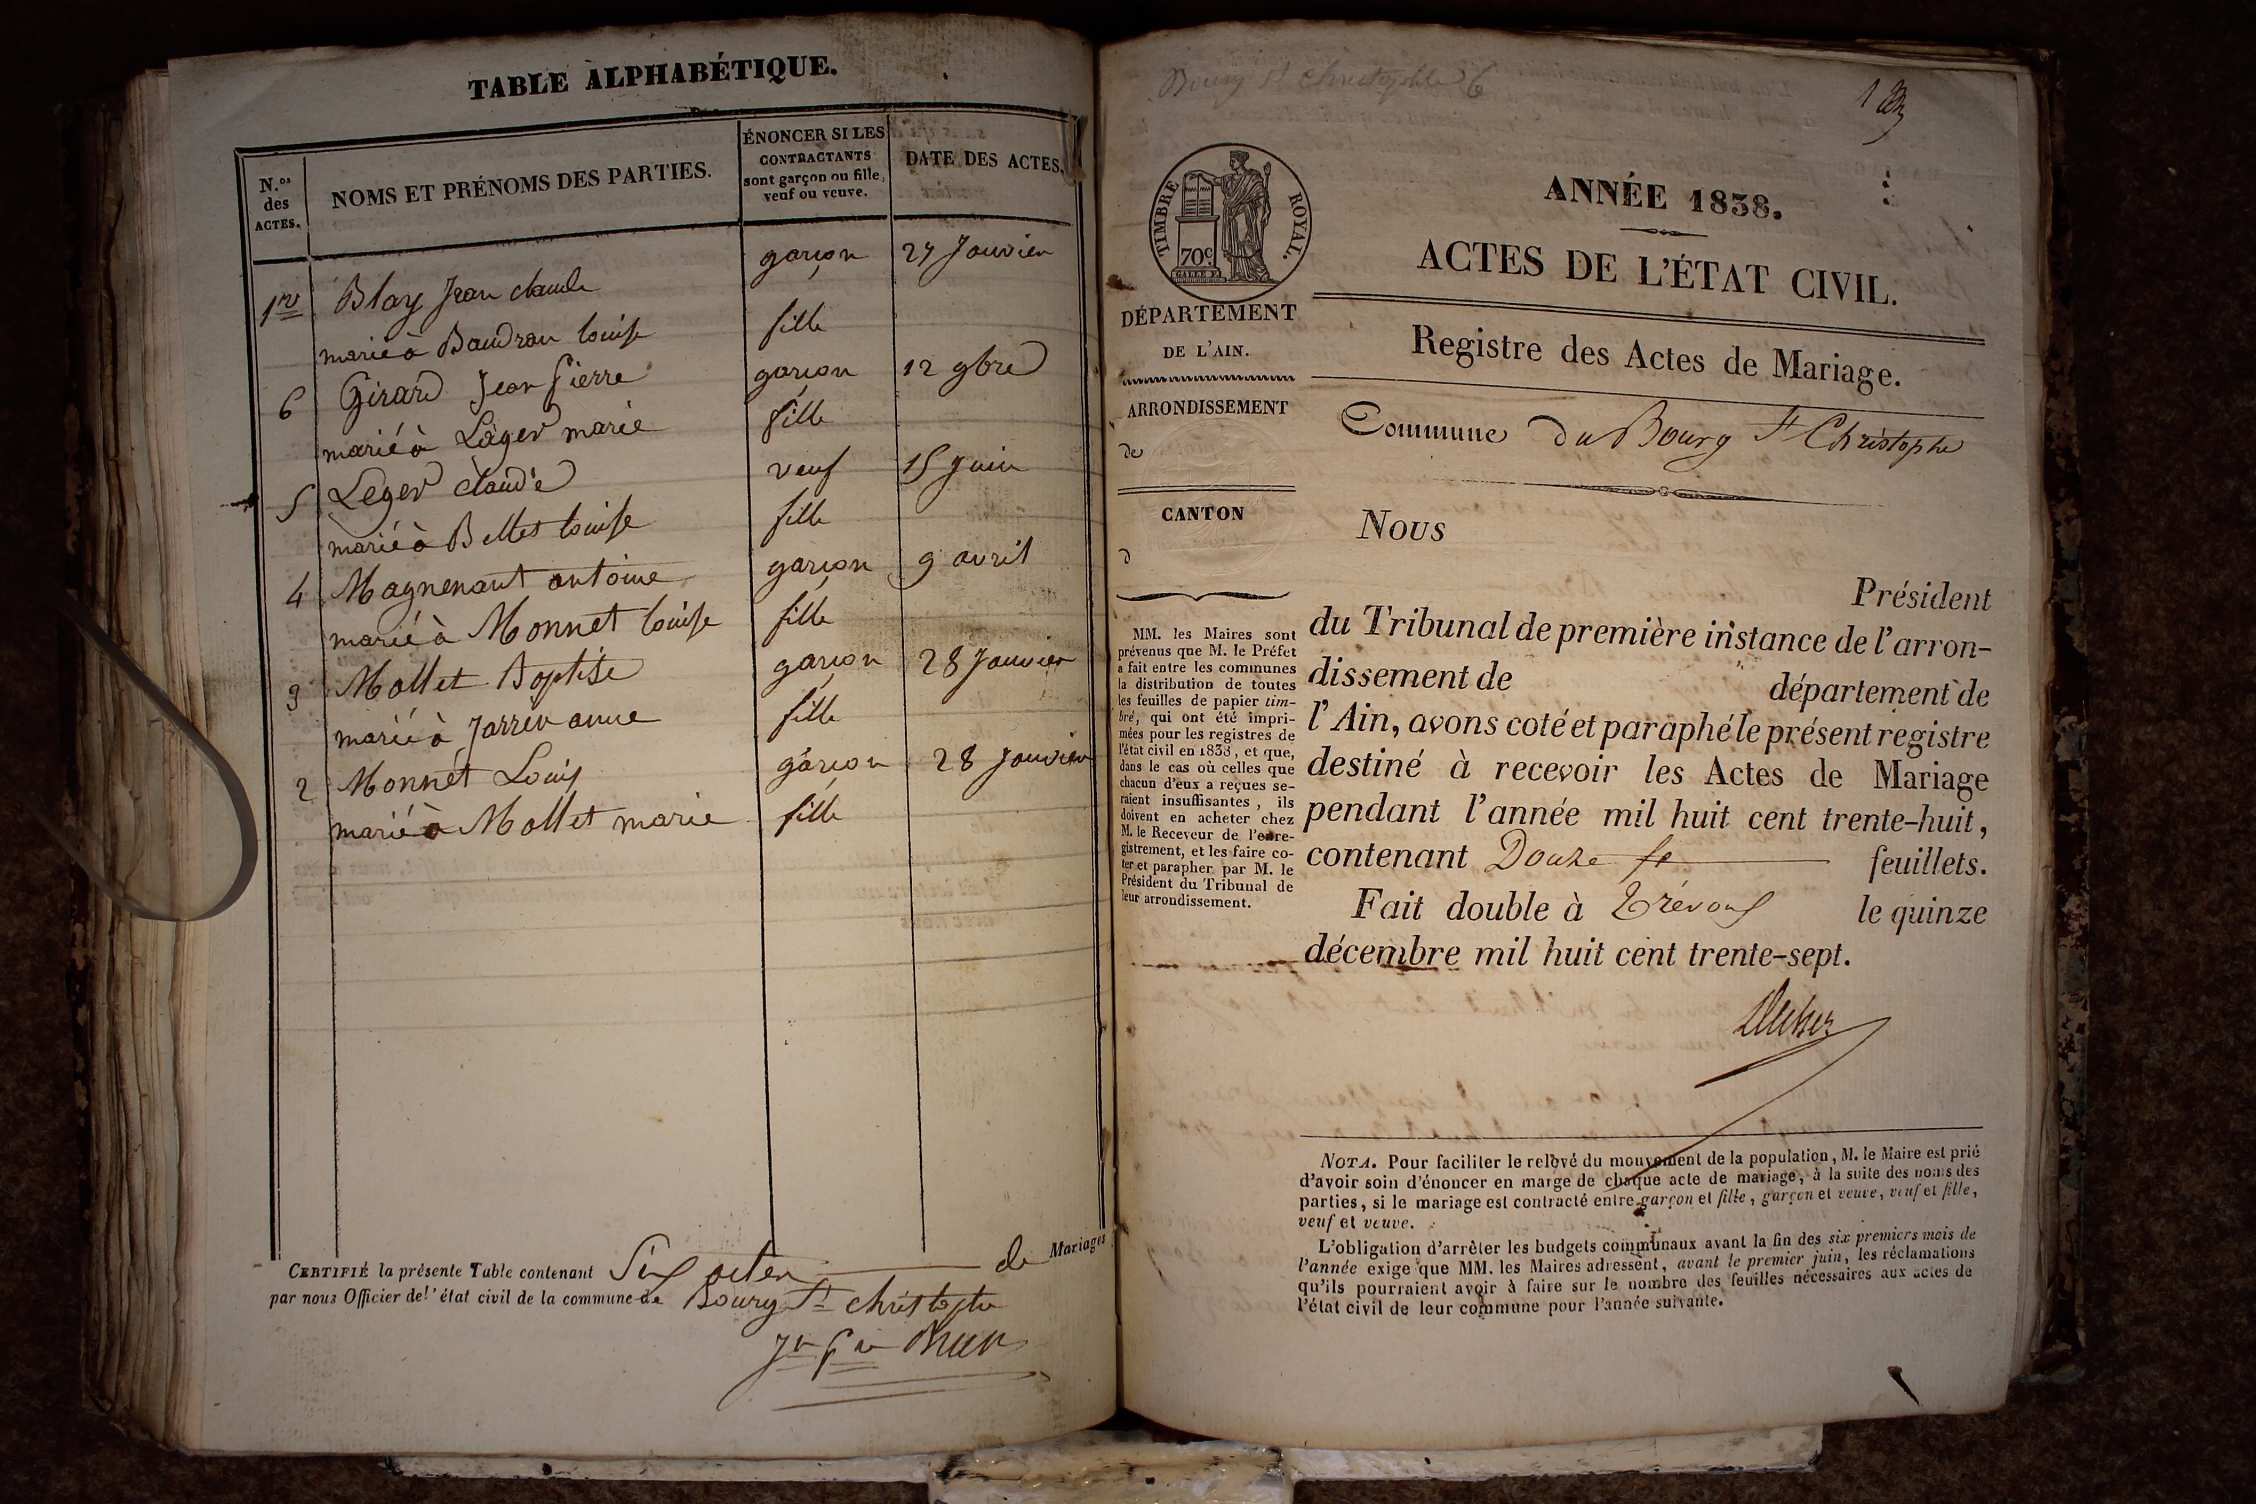 TABLE ALPHABÉTIQUE.
N.os des ACTES.
NOMS ET PRÉNOMS DES PARTIES.
ÉNONCER SI LES
CONTRACTANTS
sont garçon ou fille,
veuf ou veuve.
DATE DES ACTES.
1re Blay Jean claude garçon 27 Janvier
marié à Baudran louise fille
6 Girard Jean Pierre garçon 12 9bre
marié à Léger marie fille
5 Leger claude veuf 15 Juin
marié à Bellet louise fille
4 Magnenant antoine garçon 9 avril
marié à Monnet louise fille
3 Mollet Baptise garçon 28 Janvier
marié à Jarrin anne fille
2 Monnet Louis garçon 28 Janvier
marié à Mollet marie fille
CERTIFIÉ la présente Table contenant Six actes de Mariages
par nous Officier de l'état civil de la commune de Bourg St christophe
Bourg St Christophe 6
1er
TIMBRE ROYAL.
70c
ANNÉE 1838.
ACTES DE L'ÉTAT CIVIL.
DÉPARTEMENT
DE L'AIN.
Registre des Actes de Mariage.
ARRONDISSEMENT
de
Commune du Bourg St Christophe
CANTON
d
MM. les Maires sont
prévenus que M. le Préfet
a fait entre les communes
la distribution de toutes
les feuilles de papier tim-
bré, qui ont été impri-
mées pour les registres de
l'état civil en 1838, et que,
dans le cas où celles que
chacun d'eux a reçues se-
raient insuffisantes, ils
doivent en acheter chez
M. le Receveur de l'enre-
gistrement, et les faire co-
ter et parapher par M. le
Président du Tribunal de
leur arrondissement.
Nous
Président
du Tribunal de première instance de l'arron-
dissement de département de
l'Ain, avons coté et paraphé le présent registre
destiné à recevoir les Actes de Mariage
pendant l'année mil huit cent trente-huit,
contenant Douze feuillets.
Fait double à Trévoux le quinze
décembre mil huit cent trente-sept.
NOTA. Pour faciliter le relevé du mouvement de la population, M. le Maire est prié
d'avoir soin d'énoncer en marge de chaque acte de mariage, à la suite des noms des
parties, si le mariage est contracté entre garçon et fille, garçon et veuve, veuf et fille,
veuf et veuve.
L'obligation d'arrêter les budgets communaux avant la fin des six premiers mois de
l'année exige que MM. les Maires adressent, avant le premier juin, les réclamations
qu'ils pourraient avoir à faire sur le nombre des feuilles nécessaires aux actes de
l'état civil de leur commune pour l'année suivante.